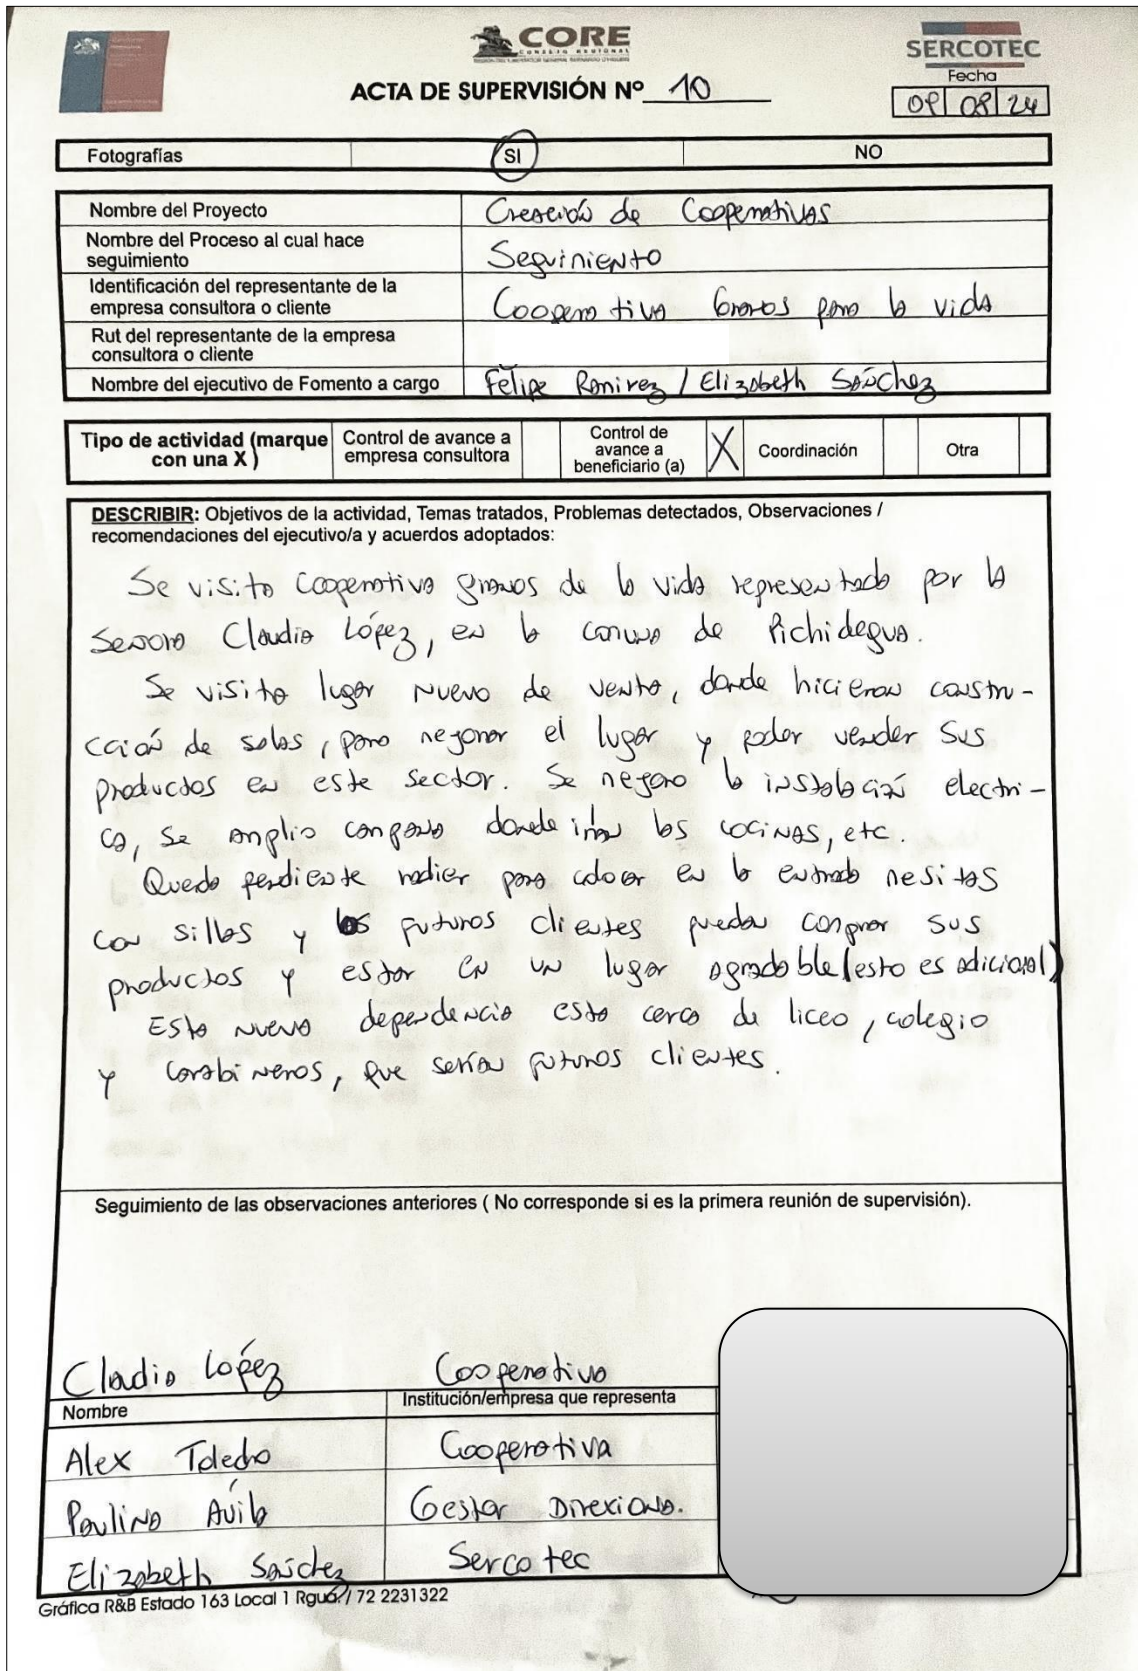 CORE
CONSEJO REGIONAL
SERCOTEC
ACTA DE SUPERVISIÓN Nº 10
Fecha
09 08 24
Fotografías SI NO
Nombre del Proyecto Creación de Cooperativas
Nombre del Proceso al cual hace
seguimiento Seguimiento
Identificación del representante de la
empresa consultora o cliente Cooperativa Granos para la vida
Rut del representante de la empresa
consultora o cliente
Nombre del ejecutivo de Fomento a cargo Felipe Ramirez / Elizabeth Sánchez
Tipo de actividad (marque
con una X ) Control de avance a
empresa consultora Control de
avance a
beneficiario (a) X Coordinación Otra
DESCRIBIR: Objetivos de la actividad, Temas tratados, Problemas detectados, Observaciones /
recomendaciones del ejecutivo/a y acuerdos adoptados:
Se visito Cooperativa granos de la vida representada por la
Señora Claudia López, en la comuna de Pichidegua.
Se visito lugar nuevo de venta, donde hicieron constru-
cción de salas, para mejorar el lugar y poder vender sus
productos en este sector. Se mejoro la instalación electri-
ca, se amplio campana donde iran las cocinas, etc.
Queda pendiente radier para colocar en la entrada mesitas
con sillas y los futuros clientes puedan comprar sus
productos y estar en un lugar agradable (esto es adicional)
Esta nueva dependencia esta cerca de liceo, colegio
y carabineros, que serían futuros clientes.
Seguimiento de las observaciones anteriores ( No corresponde si es la primera reunión de supervisión).
Cladia López Cooperativa
Nombre Institución/empresa que representa
Alex Toledo Cooperativa
Paulina Ávila Gestor Direxiona.
Elizabeth Sánchez Sercotec
Gráfica R&B Estado 163 Local 1 Rgua. / 72 2231322